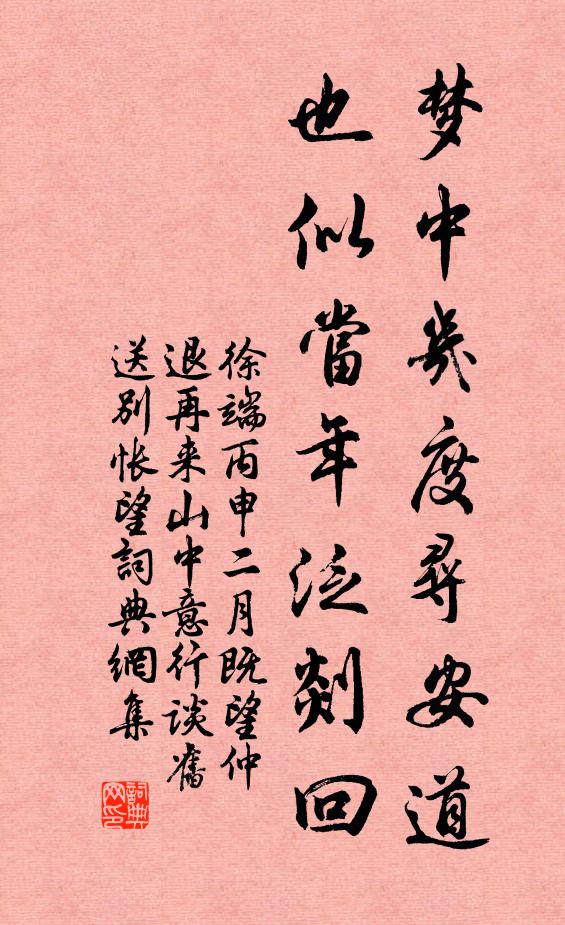 梦中幾度尋安道
也似當年泛剡回
徐端丙申二月既望仲
退再来山中意行谈舊
送别怅望詞典網集
詞典网印